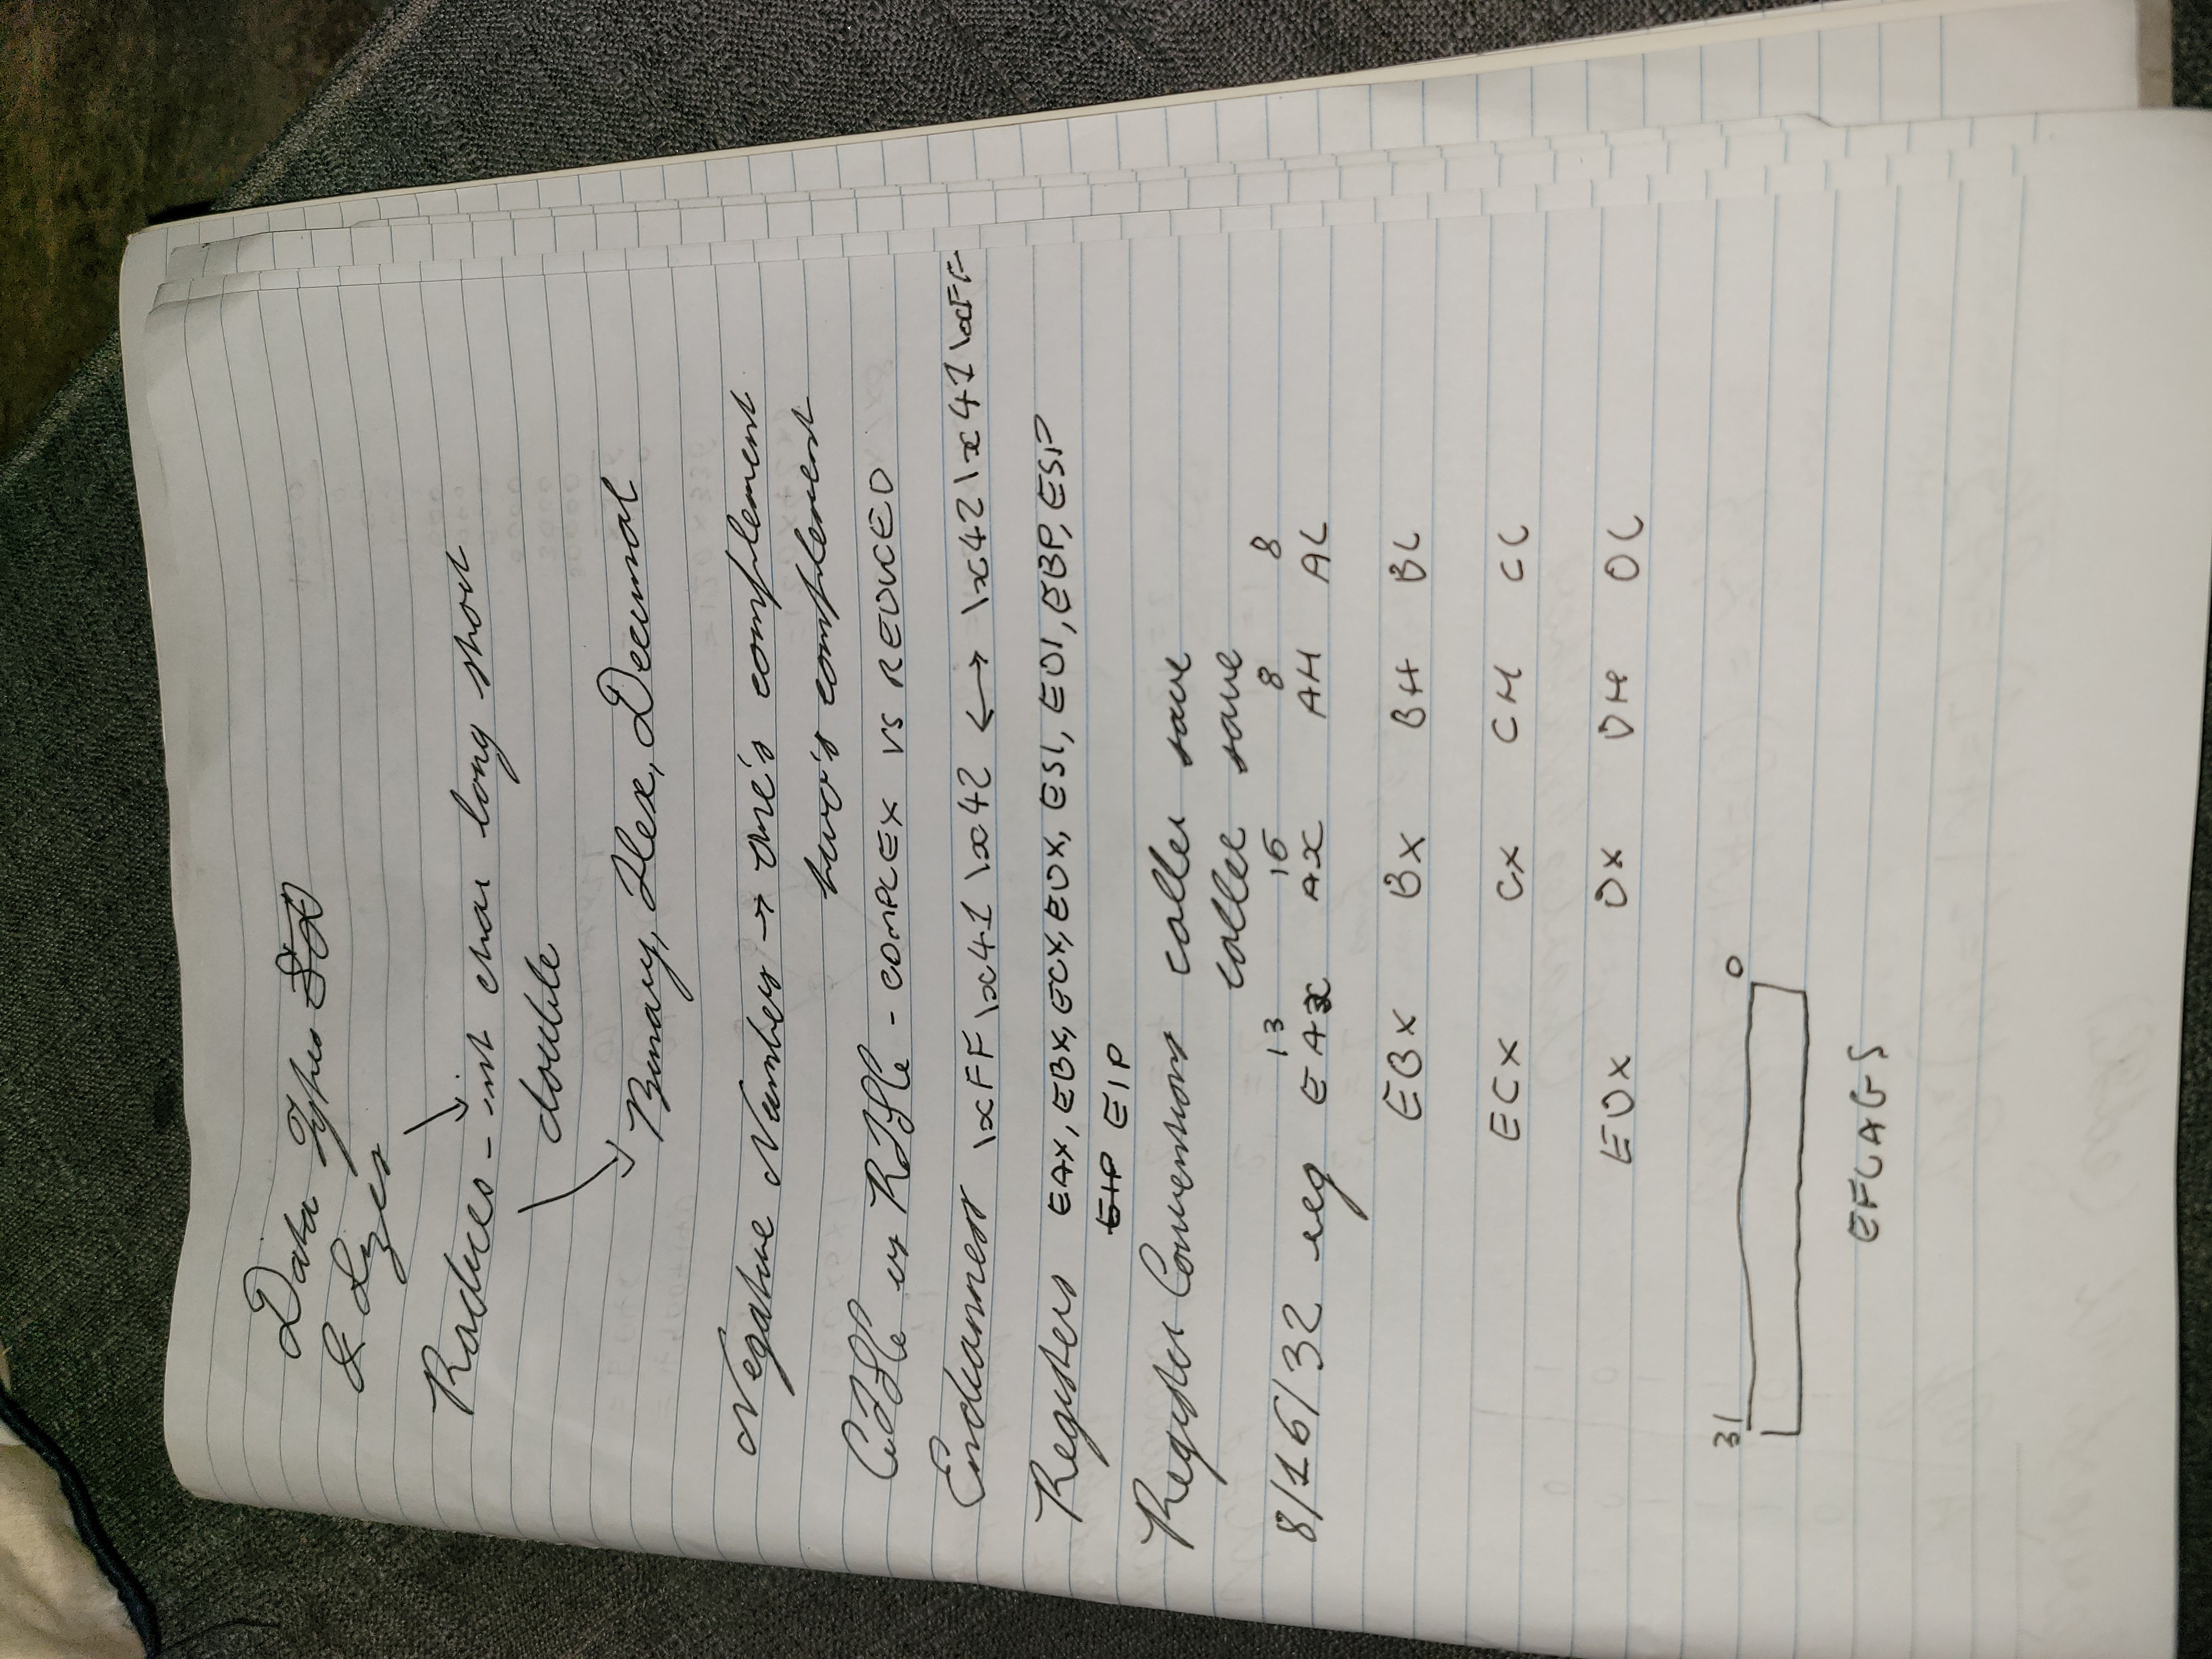 Data Types
& Sizes
Radices - int char long short
double
Binary, Hex, Decimal
Negative Numbers → one's complement
two's complement
CISC vs RISC - COMPLEX VS REDUCED
Endianness \xFF \x41 \x42 ↔ \x42 \x41 \xFF
Registers EAX, EBX, ECX, EDX, ESI, EDI, EBP, ESP
EIP EIP
Register Conventions caller save
callee save
13 16 8 8
8/16/32 reg EAX AX AH AL
EBX BX BH BL
ECX CX CH CL
EDX DX DH DL
31 0
EFLAGS